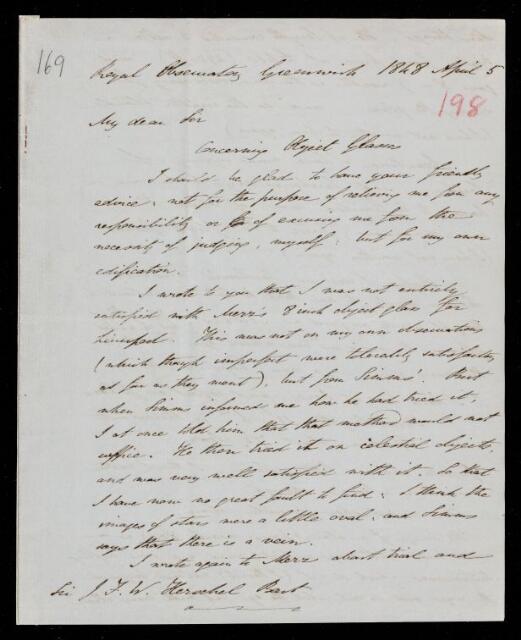 169
Royal Observatory Greenwich 1848 April 5
198
My dear Sir
Concerning Object Glasses
I should be glad to have your friendly
advice: not for the purpose of relieving me from any
responsibility or of excusing me from the
necessity of judging, myself; but for my own
edification.
I wrote to you that I was not entirely
satisfied with Merz's 8 inch object glass for
Liverpool. This was not on my own observations
(which though imperfect were tolerably satisfactory
as far as they went), but from Simms'. But
when Simms informed me how he had tried it,
I at once told him that that method would not
suffice. He then tried it on celestial objects,
and was very well satisfied with it. So that
I have now no great fault to find: I think the
images of stars were a little oval, and Simms
says that there is a vein.
I wrote again to Merz about trial and
Sir J. F. W. Herschel Bart